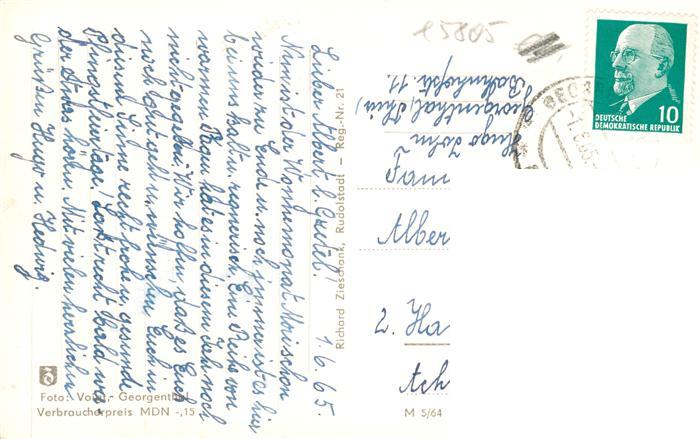 1.6.65.
Lieber Albert u. Gretel!
Nun ist der Wonnemonat Mai schon
wieder zu Ende u. noch immer ist es hier
bei uns kalt u. regnerisch. Eine Reihe von
warmen Tagen hat es in diesem Jahr noch
nicht gegeben. Wir hoffen, daß es Euch
noch gut geht u. wünschen Euch in
diesem Sinne recht frohe u. gesunde
Pfingstfeiertage! Laßt recht bald wie-
der etwas hören. Mit vielen herzlichen
Grüßen Hugo u. Hedwig.
Foto: Georgenthal
Verbraucherpreis MDN -,15
Richard Zieschank, Rudolstadt — Reg.-Nr. 21
M 5/64
e5805
Hugo John
Georgenthal (Thür)
Bahnhofstr. 11.
Fam
Alber
2. Ha
Ach
DEUTSCHE
DEMOKRATISCHE REPUBLIK
10